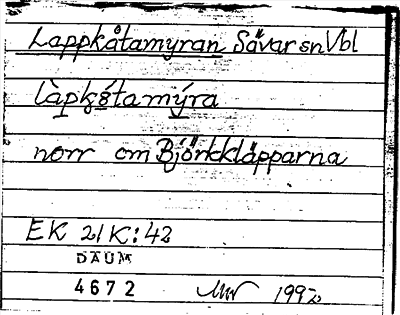 Lappkåtamyran Sävar sn Vbl
làpkǻtamýra
norr om Björkkläpparna
EK 21K:42
DAUM
4672 1992